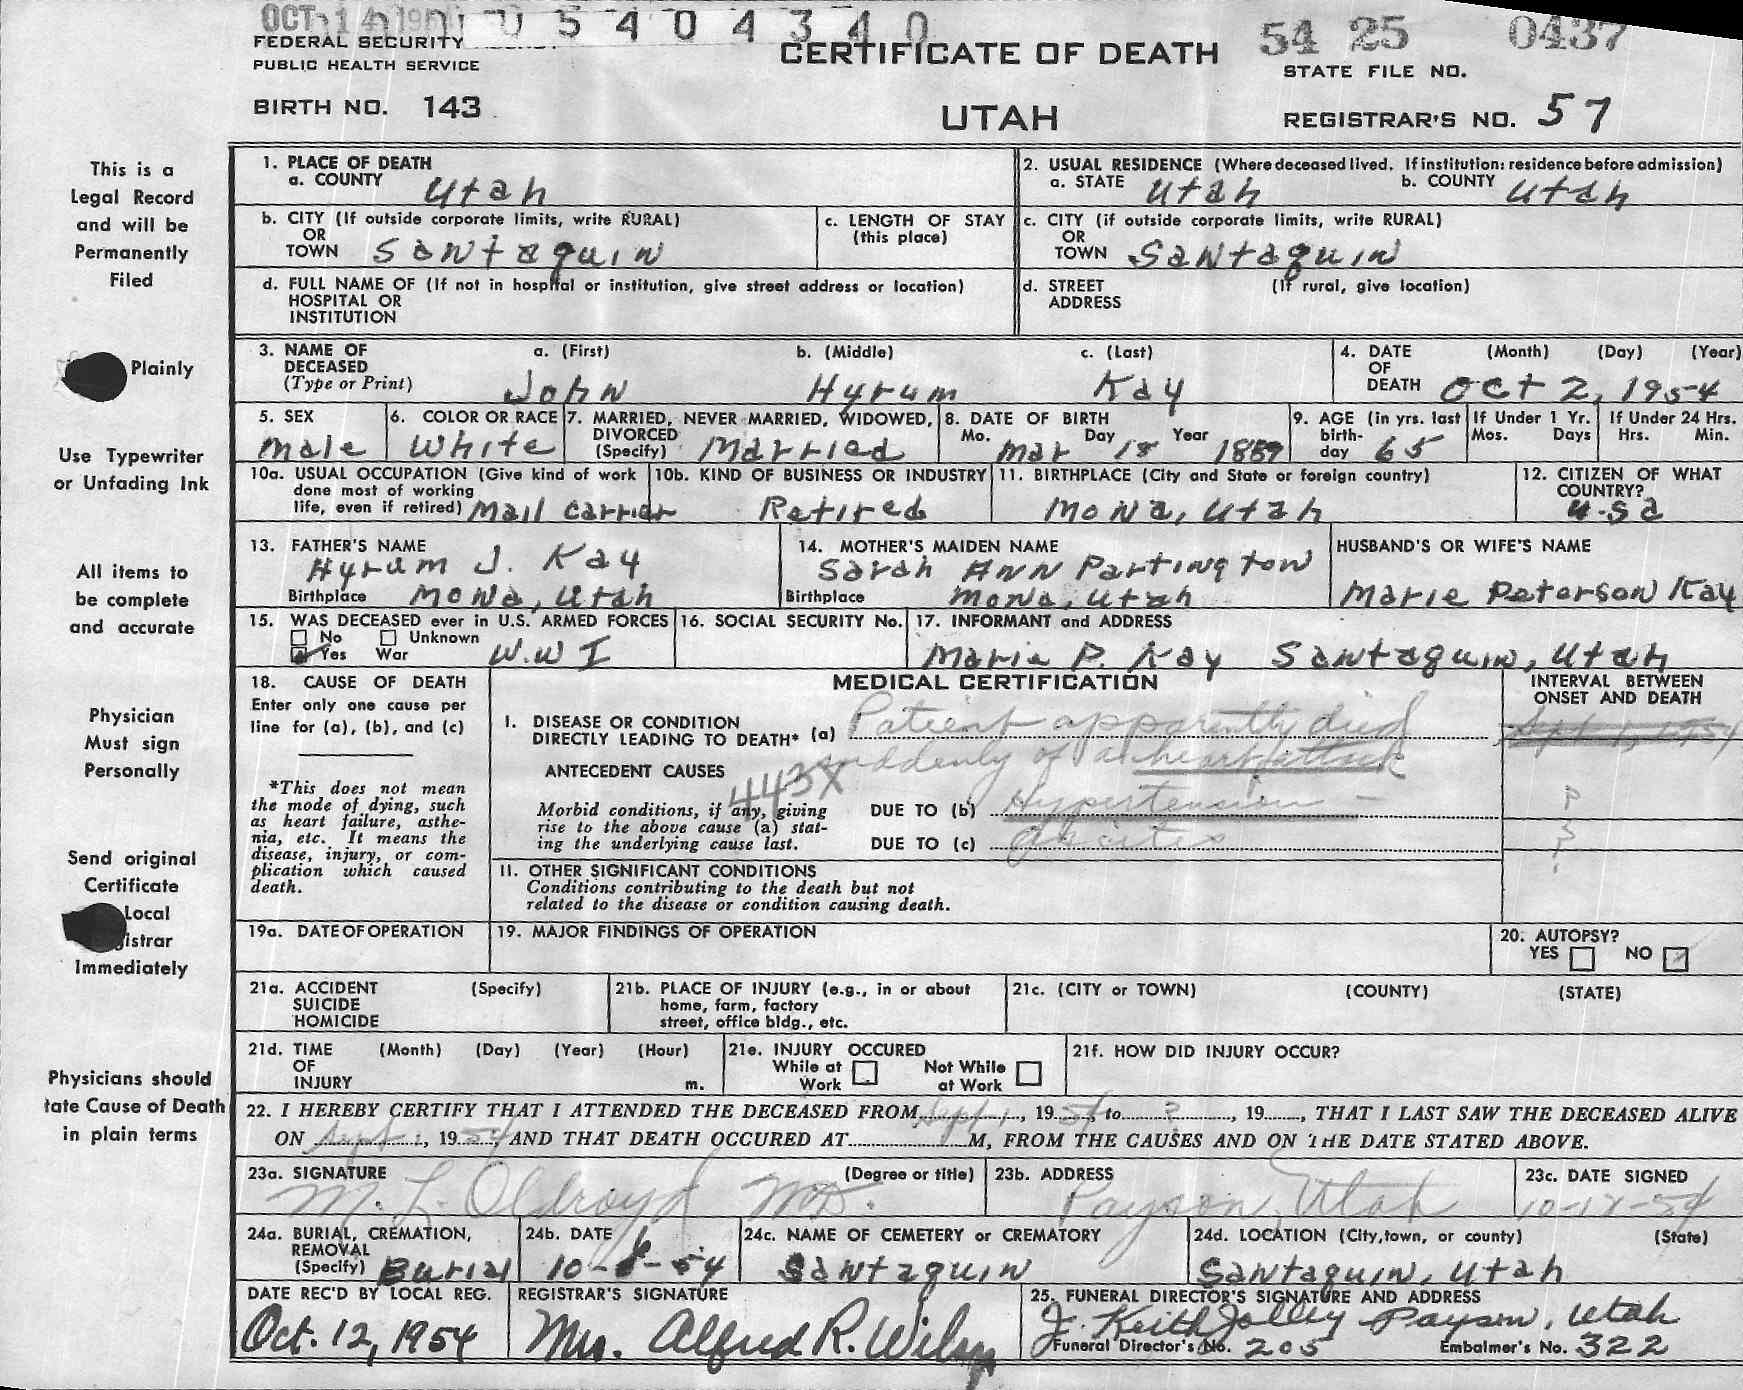 OCT 14 195
0 5 4 0 4 3 4 0
FEDERAL SECURITY
PUBLIC HEALTH SERVICE
CERTIFICATE OF DEATH
54 25 0437
STATE FILE NO.
BIRTH NO. 143
UTAH
REGISTRAR'S NO. 57
This is a
Legal Record
and will be
Permanently
Filed
Plainly
Use Typewriter
or Unfading Ink
All items to
be complete
and accurate
Physician
Must sign
Personally
Send original
Certificate
Local
istrar
Immediately
Physicians should
tate Cause of Death
in plain terms
1. PLACE OF DEATH
a. COUNTY Utah
2. USUAL RESIDENCE (Where deceased lived. If institution: residence before admission)
a. STATE Utah b. COUNTY Utah
b. CITY (If outside corporate limits, write RURAL)
OR
TOWN Santaquin
c. LENGTH OF STAY
(this place)
c. CITY (if outside corporate limits, write RURAL)
OR
TOWN Santaquin
d. FULL NAME OF (If not in hospital or institution, give street address or location)
HOSPITAL OR
INSTITUTION
d. STREET (If rural, give location)
ADDRESS
3. NAME OF DECEASED
(Type or Print)
a. (First) b. (Middle) c. (Last)
John Hyrum Kay
4. DATE OF DEATH (Month) (Day) (Year)
Oct 2, 1954
5. SEX
male
6. COLOR OR RACE
White
7. MARRIED, NEVER MARRIED, WIDOWED,
DIVORCED
(Specify) Married
8. DATE OF BIRTH
Mo. Day Year
Mar 18 1889
9. AGE (in yrs. last
birth-
day 65
If Under 1 Yr.
Mos. Days
If Under 24 Hrs.
Hrs. Min.
10a. USUAL OCCUPATION (Give kind of work
done most of working
life, even if retired) Mail Carrier
10b. KIND OF BUSINESS OR INDUSTRY
Retired
11. BIRTHPLACE (City and State or foreign country)
Mona, Utah
12. CITIZEN OF WHAT
COUNTRY?
U.S a
13. FATHER'S NAME
Hyrum J. Kay
Birthplace Mona, Utah
14. MOTHER'S MAIDEN NAME
Sarah Ann Partington
Birthplace Mona, Utah
HUSBAND'S OR WIFE'S NAME
Marie Peterson Kay
15. WAS DECEASED ever in U.S. ARMED FORCES
No Unknown
Yes War W.W I
16. SOCIAL SECURITY No.
17. INFORMANT and ADDRESS
Marie P. Kay Santaquin, Utah
18. CAUSE OF DEATH
Enter only one cause per
line for (a), (b), and (c)
*This does not mean
the mode of dying, such
as heart failure, asthe-
nia, etc. It means the
disease, injury, or com-
plication which caused
death.
MEDICAL CERTIFICATION
INTERVAL BETWEEN
ONSET AND DEATH
I. DISEASE OR CONDITION
DIRECTLY LEADING TO DEATH* (a) Patient apparently died
suddenly of a heart attack
Sept 1, 1954
ANTECEDENT CAUSES
443X
Morbid conditions, if any, giving
rise to the above cause (a) stat-
ing the underlying cause last.
DUE TO (b) Hypertension -
?
DUE TO (c)
?
II. OTHER SIGNIFICANT CONDITIONS
Conditions contributing to the death but not
related to the disease or condition causing death.
19a. DATE OF OPERATION
19. MAJOR FINDINGS OF OPERATION
20. AUTOPSY?
YES NO
21a. ACCIDENT (Specify)
SUICIDE
HOMICIDE
21b. PLACE OF INJURY (e.g., in or about
home, farm, factory
street, office bldg., etc.
21c. (CITY or TOWN) (COUNTY) (STATE)
21d. TIME (Month) (Day) (Year) (Hour)
OF
INJURY m.
21e. INJURY OCCURED
While at Work Not While at Work
21f. HOW DID INJURY OCCUR?
22. I HEREBY CERTIFY THAT I ATTENDED THE DECEASED FROM Sept 1, 1954 to ?, 19, THAT I LAST SAW THE DECEASED ALIVE
ON Sept 1, 1954 AND THAT DEATH OCCURED AT M, FROM THE CAUSES AND ON THE DATE STATED ABOVE.
23a. SIGNATURE (Degree or title)
M. L. Oldroyd MD.
23b. ADDRESS
Payson, Utah
23c. DATE SIGNED
10-12-54
24a. BURIAL, CREMATION,
REMOVAL
(Specify) Burial
24b. DATE
10-6-54
24c. NAME OF CEMETERY OR CREMATORY
Santaquin
24d. LOCATION (City, town, or county) (State)
Santaquin, Utah
DATE REC'D BY LOCAL REG.
Oct. 12, 1954
REGISTRAR'S SIGNATURE
Mrs. Alfred R. Wilson
25. FUNERAL DIRECTOR'S SIGNATURE AND ADDRESS
J. Keith Jolley Payson, Utah
Funeral Director's No. 205 Embalmer's No. 322